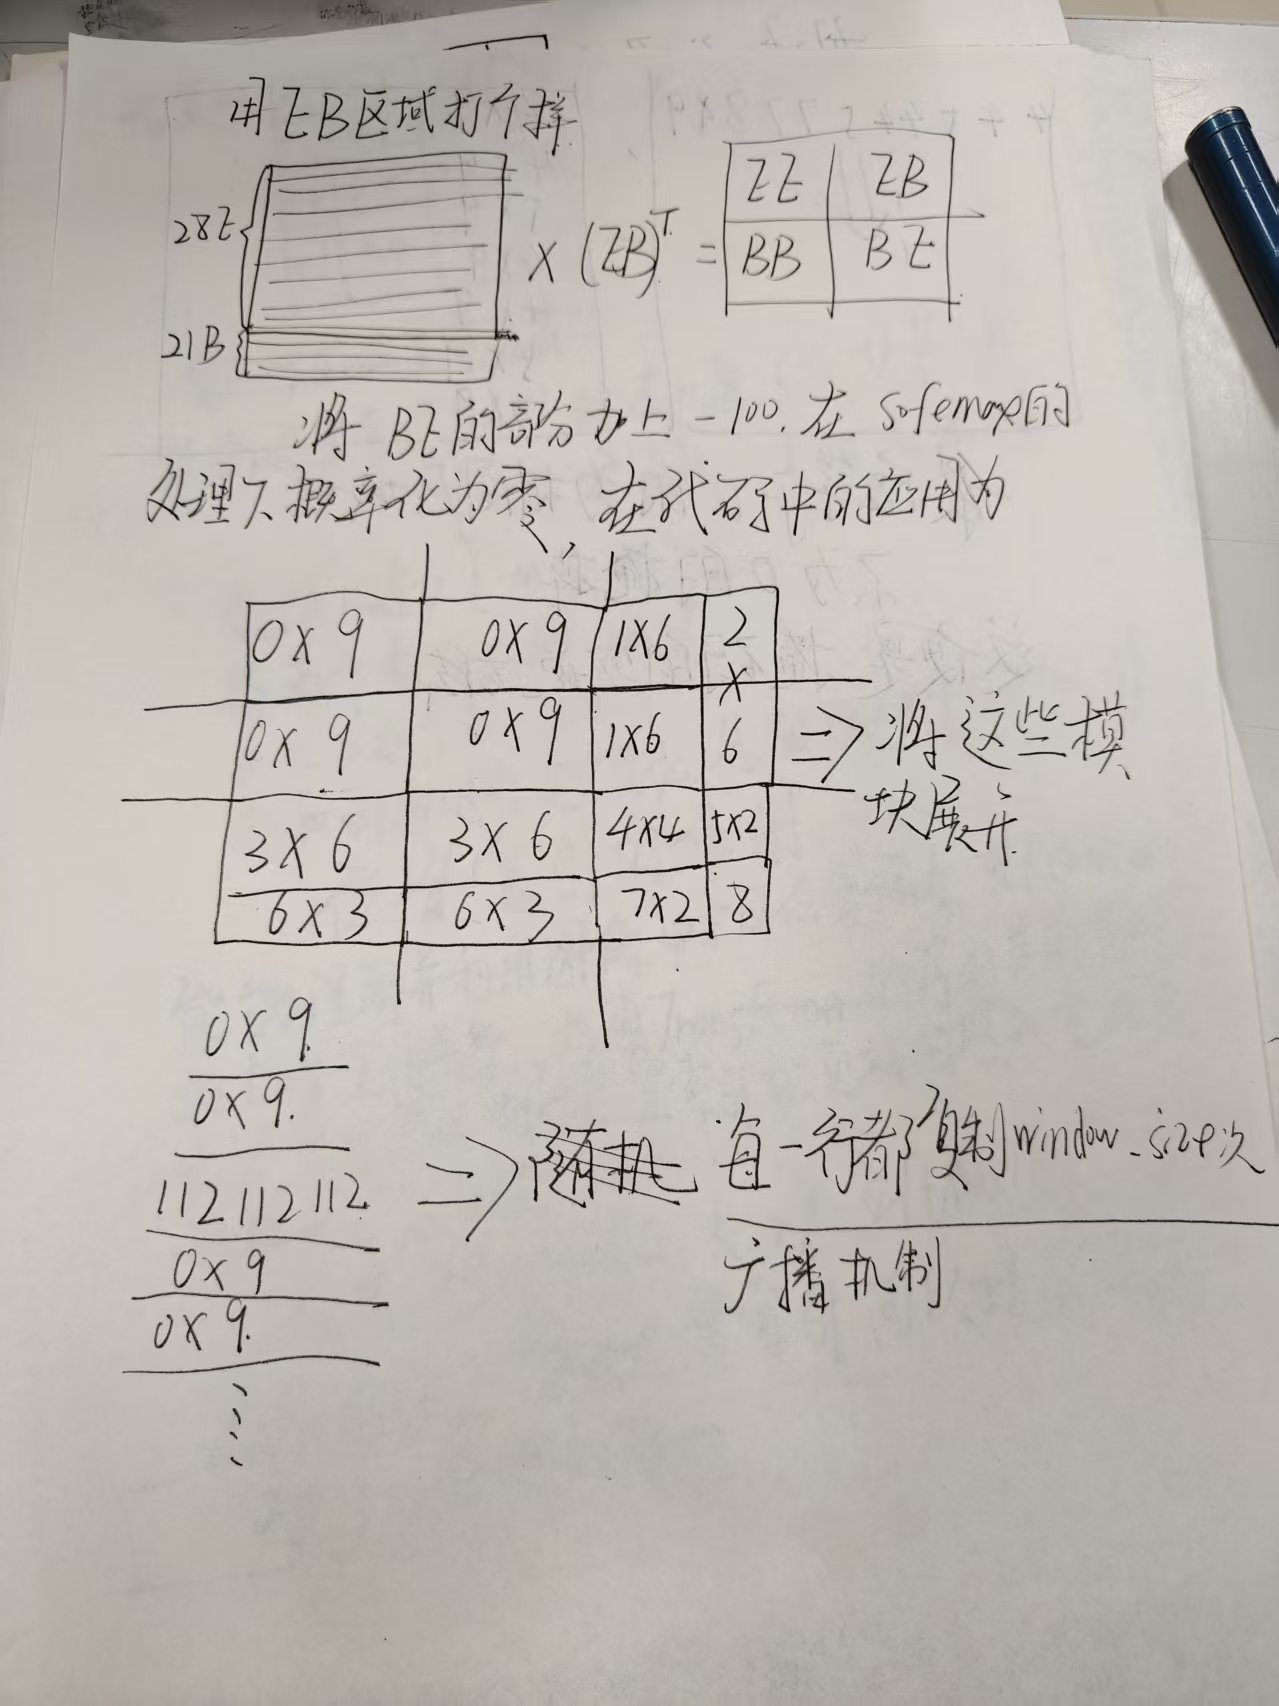 用EB区域打个样
28E
21B
× (EB)ᵀ =
EE EB
BB BE
将 BE的部分加上 -100. 在 sofemax的
处理下概率化为零, 在代码中的应用为
0×9 0×9 1×6 2×6
0×9 0×9 1×6
3×6 3×6 4×4 5×2
6×3 6×3 7×2 8
⇒ 将这些模
块展开.
0×9.
0×9.
112 112 112
0×9
0×9.
⋮
⇒ 随机 每一行都复制window_size次
广播机制